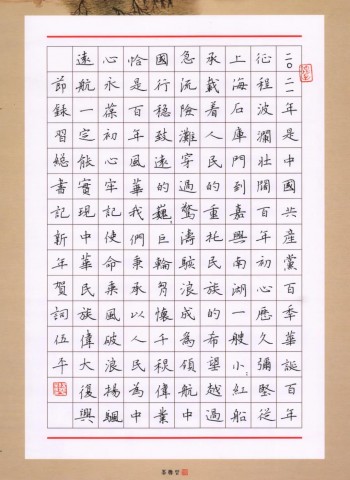 二〇二一年是中國共產黨百年華誕百年
征程波瀾壯闊百年初心歷久彌堅從
上海石庫門到嘉興南湖一艘小〻紅船
承載着人民的重托民族的希望越過
急流險灘穿過驚濤駭浪成為領航中
國行穩致遠的巍〻巨輪胷懷千秋偉業
恰是百年風華我們秉承以人民為中
心永葆初心牢記使命乘風破浪揚颿
遠航一定能實現中華民族偉大復興
節錄習總書記新年賀詞伍平